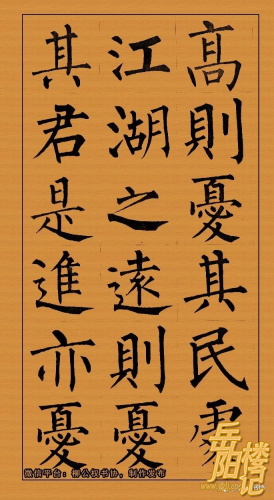 高則憂其民處
江湖之遠則憂
其君是進亦憂
微信平台：柳公权书协，制作发布
岳阳楼记